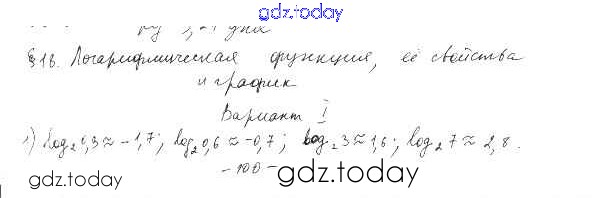 gdz.today
§18. Логарифмическая функция, её свойства
и график
Вариант I
1) log₂0,3≈-1,7; log₂0,6≈-0,7; log₂3≈1,6; log₂7≈2,8.
-100-
gdz.today
gdz.today